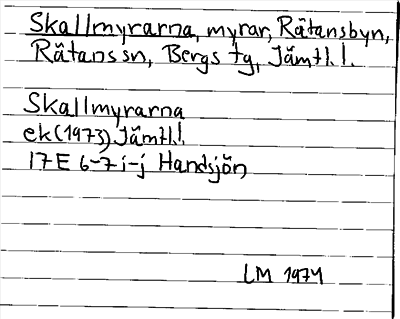 Skallmyrarna, myrar, Rätansbyn,
Rätans sn, Bergs tg, Jämtl. l.
Skallmyrarna
ek (1973) Jämtl. l.
17E 6-7 i-j Handsjön
LM 1974